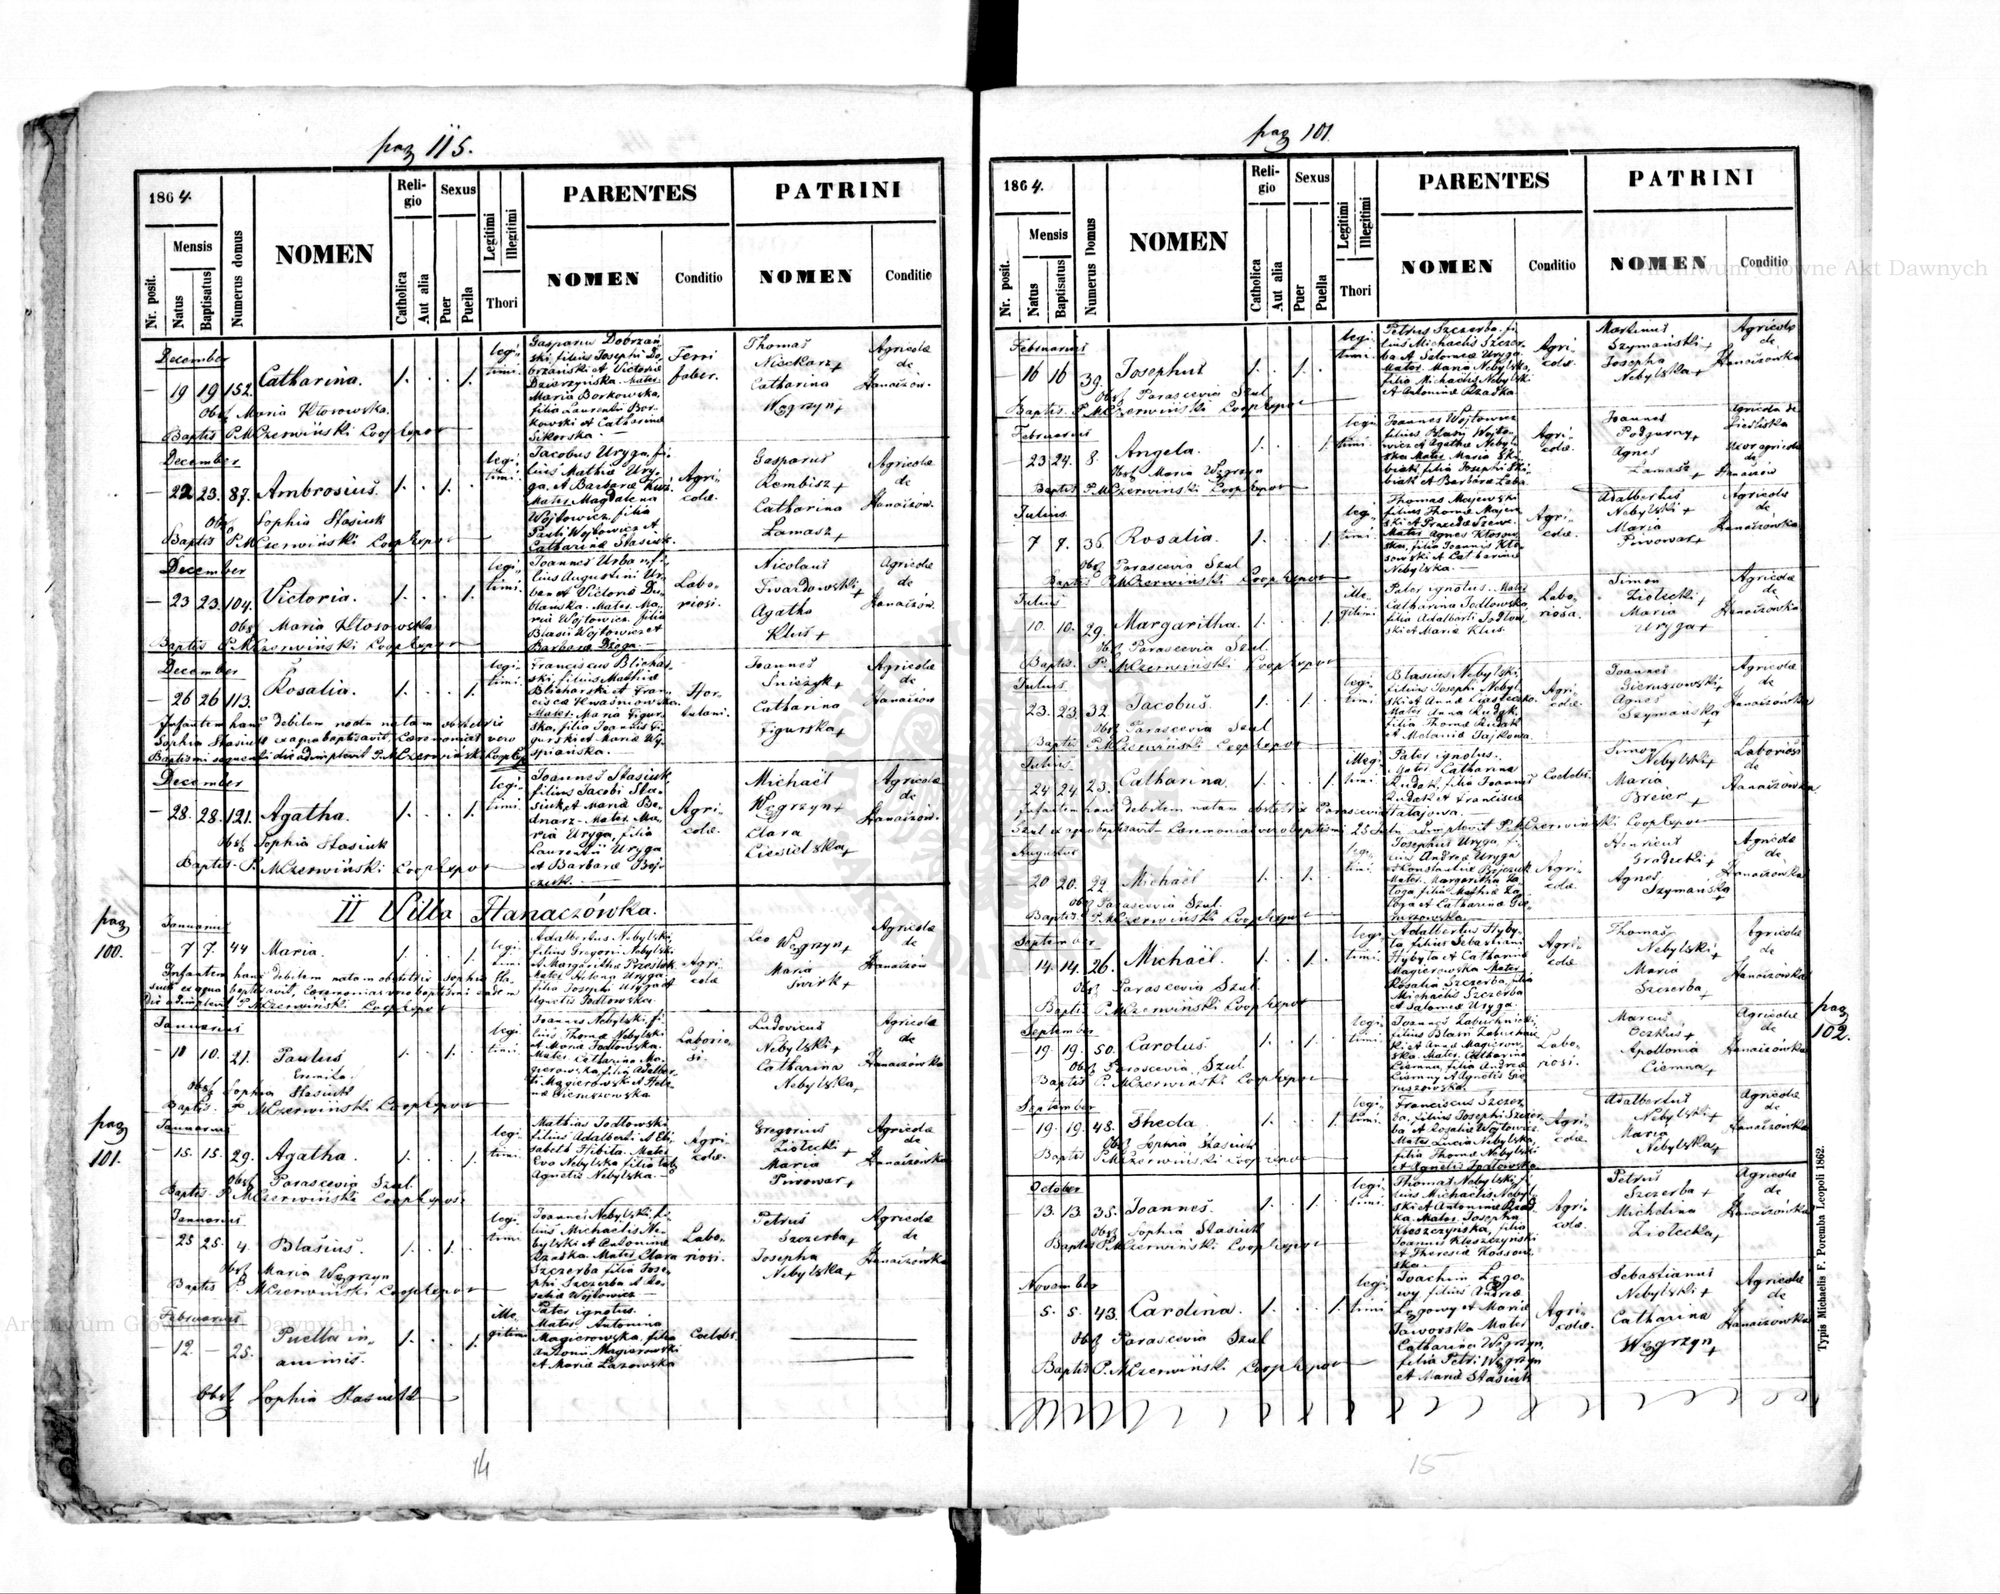 pag 115.
1864.
Mensis
Nr. posit.
Natus
Baptisatus
Numerus domus
NOMEN
Reli-
gio
Catholica
Aut alia
Sexus
Puer
Puella
Legitimi
Illegitimi
Thori
PARENTES
NOMEN
Conditio
PATRINI
NOMEN
Conditio
December
19 19 152. Catharina. 1. . . 1.
Obst Maria Kłosowska.
Baptis P. M Czerwiński Coop Expos
legi-
timi.
Gasparus Dobrzań-
ski, filius Josephi Do-
brzański et Victoria
Dzierzyńska. Mater
Maria Borkowska,
filia Laurentii Bor-
kowski et Catharinæ
Sikorska.
Ferri
faber.
Thomas
Nieckarz +
Catharina
Węgrzyn +
Agricolæ
de
Hanaczów.
December
22 23. 87. Ambrosius. 1. . 1. .
Obst Sophia Stasiuk
Baptis P. M Czerwiński Coop Expos
legi-
timi.
Jacobus Uryga, fi-
lius Mathiæ Ury-
ga, et Barbaræ
Mater Magdalena
Wojtowicz, filia
Pauli Wojtowicz et
Catharinæ Stasiuk.
Agri-
colæ.
Gasparus
Rembisz +
Catharina
Łamasz +
Agricolæ
de
Hanaczów.
December
23 23. 104. Victoria. 1. . . 1.
Obst Maria Kłosowska
Baptis P. M Czerwiński Coop Expos
legi-
timi.
Joannes Urban, fi-
lius Augustini Ur-
ban et Victoria Du-
blańska. Mater Ma-
ria Wojtowicz, filia
Blasii Wojtowicz et
Barbaræ
Labo-
riosi.
Nicolaus
Twardowski +
Agatha
Kluś +
Agricolæ
de
Hanaczów.
December
26 26 113. Rosalia. 1. . . 1.
Infantem hanc debilem noctu natam obstetrix
Sophia Stasiuk ex aqua baptisavit, Cæremonias vero
Baptismi sequenti die adimplevit P. M Czerwiński Coop Exp
legi-
timi.
Franciscus Blichar-
ski, filius Mathiæ
Blicharski et Fran-
ciscæ Kwaśniowska.
Mater Maria Figur-
ska, filia Joannis Fi-
gurski et Mariæ Wy-
spiańska.
Hor-
tulani.
Joannes
Śniczyk +
Catharina
Figurska +
Agricolæ
de
Hanaczów
December
28. 28. 121. Agatha. 1. . . 1.
Obst Sophia Stasiuk
Baptis P. M Czerwiński Coop Expos
legi-
timi.
Joannes Stasiuk
filius Jacobi Sta-
siuk et Maria Bo-
dnarz. Mater Ma-
ria Uryga, filia
Laurentii Uryga
et Barbaræ Boj-
czuk.
Agri-
colæ.
Michaël
Węgrzyn +
Clara
Ciesielska +
Agricolæ
de
Hanaczów.
II Villa Hanaczówka.
pag
100.
Januarius
7 7. 44 Maria. 1. . . 1.
Infantem hanc debilem natam obstetrix Sophia Sta-
siuk ex aqua baptisavit, Cæremonias vero baptismi eadem
die adimplevit P. M Czerwiński Coop Expos
legi-
timi.
Adalbertus Nebylski,
filius Gregorii Nebylski
et Margarithæ
Mater Antonina Uryga
filia Josephi Uryga et
Agnetis Jodłowska.
Agri-
colæ
Leo
Węgrzyn +
Maria
Świrk +
Agricolæ
de
Hanaczów
Januarius
10 10. 21. Paulus 1. . 1. .
Eremita.
Obst Sophia Stasiuk
Baptis. P. M Czerwiński Coop Expos
legi-
timi.
Joannes Nebylski, fi-
lius Thomæ Nebylski
et Maria Jodłowska.
Mater Catharina Ma-
gierowska, filia Adalber-
ti Magierowski et Hele-
næ Gieruszowska
Laborio-
si.
Ludovicus
Nebylski +
Catharina
Nebylska +
Agricolæ
de
Hanaczówka
pag
101.
Januarius
15. 15. 29. Agatha. 1. . . 1.
Obst Parascevia Szul
Baptis. P. M Czerwiński Coop Expos.
legi-
timi.
Mathias Jodłowski
filius Adalberti et Eli-
sabeth Hibita. Mater
Eva Nebylska filia
Agnetis Nebylska.
Agri-
colæ.
Gregorius
Ziołecki +
Maria
Piwowar +
Agricolæ
de
Hanaczówka
Januarius
25 25. 4. Blasius. 1. . 1. .
Obst Maria Węgrzyn
Baptis P. M Czerwiński Coop Expos
legi-
timi.
Joannes Nebylski, fi-
lius Michaelis Ne-
bylski et Antoninæ
Rzadka. Mater Clara
Szczerba filia Jose-
phi Szczerba et Ro-
saliæ Wojtowicz
Labo-
riosi.
Petrus
Szczerba +
Josepha
Nebylska +
Agricolæ
de
Hanaczówka
Februarius
12. — 25. Puella in- 1. . . 1.
animis.
Obst Sophia Stasiuk
ille-
gitimi
Pater ignotus.
Mater Antonina
Magierowska, filia
Antonii Magierowski
et Mariæ Łazowska
Coelebs.
14
pag 101.
1864.
Mensis
Nr. posit.
Natus
Baptisatus
Numerus Domus
NOMEN
Reli-
gio
Catholica
Aut alia
Sexus
Puer
Puella
Legitimi
Illegitimi
Thori
PARENTES
NOMEN
Conditio
PATRINI
NOMEN
Conditio
Februarius
16 16 39. Josephus 1. . 1. .
Obst Parascevia Szul
Baptis. P. M Czerwiński Coop Expos
legi-
timi.
Petrus Szczerba, fi-
lius Michaelis Szczer-
ba et Salomeæ Uryga.
Mater Maria Nebylska,
filia Michaelis Nebylski
et Antoninæ Rzadka.
Agri-
colæ.
Martinus
Szymański +
Josepha
Nebylska +
Agricolæ
de
Hanaczówka
Februarius
23 24. 8. Angela. 1. . . 1.
Obst Maria Węgrzyn
Baptis P. M Czerwiński Coop Expos
legi-
timi.
Joannes Wojtowicz
filius Blasii Wojto-
wicz et Agathæ Nebyl-
ska Mater Maria
filia Josephi
et Barbaræ
Agri-
colæ.
Joannes
Podgurny +
Agnes
Łamasz +
Agricola de
Uxor agricolæ
de
Hanaczów
Julius
7 7. 36. Rosalia. 1. . . 1.
Obst Parascevia Szul
Baptis P. M Czerwiński Coop Expos
legi-
timi.
Thomas Majewski
filius Thomæ Majew-
ski et Praxedæ
Mater Agnes Kłosow-
ska, filia Joannis Kło-
sowski et Catharinæ
Nebylska.
Agri-
colæ.
Adalbertus
Nebylski +
Maria
Piwowar +
Agricolæ
de
Hanaczówka
Julius
10. 10. 29. Margaritha. 1. . . 1.
Obst Parascevia Szul.
Baptis. P. M Czerwiński Coop Expos
ille-
gitimi.
Pater ignotus. Mater
Catharina Jodłowska,
filia Adalberti Jodłow-
ski et Mariæ Klus.
Labo-
riosa.
Simon
Ziołecki +
Maria
Uryga +
Agricolæ
de
Hanaczówka
Julius
23. 23. 32. Jacobus. 1. . 1. .
Obst Parascevia Szul
Baptis P. M Czerwiński Coop Expos
legi-
timi.
Blasius Nebylski,
filius Josephi Nebyl-
ski et Anna
Mater Anna Rudak,
filia Thomæ Rudak
et Melaniæ
Agri-
colæ.
Joannes
Gieruszowski +
Agnes
Szymańska +
Agricolæ
de
Hanaczówka
Julius
24 24 23. Catharina. 1. . . 1.
Infantem hanc debilem natam obstetrix Parascevia
Szul ex aqua baptisavit Cæremonias vero baptismi 25 Julii adimplevit P. M Czerwiński Coop Expos
illegi-
timi.
Pater ignotus.
Mater Catharina
Rudak, filia Joannis
Rudak et Franciscæ
Coelebs.
Simon
Nebylski +
Maria
Breier +
Laboriosi
de
Hanaczówka
Augustus
20 20. 22. Michaël 1. . 1. .
Obst Parascevia Szul.
Baptis. P. M Czerwiński Coop Expos
legi-
timi.
Josephus Uryga, fi-
lius Andreæ Uryga
et Konstantiæ Bojczuk
Mater Margaritha
filia Mathiæ
et Catharinæ Gie-
ruszowska.
Agri-
colæ.
Henricus
Gradecki +
Agnes
Szymańska +
Agricolæ
de
Hanaczówka
September
14. 14. 26. Michaël. 1. . 1. .
Obst Parascevia Szul.
Baptis P. M Czerwiński Coop Expos
legi-
timi.
Adalbertus Hyby-
ta, filius Sebastiani
Hybyta et Catharinæ
Magierowska Mater
Rosalia Szczerba, filia
Michaelis Szczerba
et Salomeæ Uryga.
Agri-
colæ
Thomas
Nebylski +
Maria
Szczerba +
Agricolæ
de
Hanaczówka
pag
102.
September
19. 19. 50. Carolus. 1. . 1. .
Obst Parascevia Szul
Baptis P. M Czerwiński Coop Expos
legi-
timi.
Joannes
filius Blasii
et Anna Magierow-
ska. Mater Catharina
Ciemna, filia Andreæ
Ciemny et Agnetis Gie-
ruszowska.
Labo-
riosi.
Marcus
Oczkus +
Apollonia
Ciemna +
Agricolæ
de
Hanaczówka
September
19. 19. 48. Theda 1. . . 1.
Obst Sophia Stasiuk
Baptis P. M Czerwiński Coop Expos
legi-
timi.
Franciscus Szczer-
ba, filius Josephi Szczer-
ba et Rosaliæ Wojtowicz
Mater Lucia Nebylska,
filia Thomæ Nebylski
et Agnetis Jodłowska.
Agri-
colæ.
Adalbertus
Nebylski +
Maria
Nebylska +
Agricolæ
de
Hanaczówka
October
13. 13. 35. Joannes. 1. . 1. .
Obst Sophia Stasiuk
Baptis P. M Czerwiński Coop Expos
legi-
timi.
Thomas Nebylski, fi-
lius Michaelis Nebyl-
ski et Antoninæ Rzad-
ka. Mater Josepha
Kleszczyńska, filia
Joannis Kleszczyński
et Theresiæ Kossow-
ska.
Agri-
colæ.
Petrus
Szczerba +
Michelina
Ziołecka +
Agricolæ
de
Hanaczówka
November
5. 5. 43. Carolina. 1. . . 1.
Obst Parascevia Szul
Baptis P. M Czerwiński Coop Expos
legi-
timi.
Joachim Łęgo-
wy, filius Andreæ
Łęgowy et Mariæ
Jaworska Mater
Catharina Węgrzyn,
filia Petri Węgrzyn
et Mariæ Stasiuk
Agri-
colæ.
Sebastianus
Nebylski +
Catharina
Węgrzyn +
Agricolæ
de
Hanaczówka
Typis Michaelis F. Poremba Leopoli 1862.
15
Archiwum Główne Akt Dawnych
Archiwum Główne Akt Dawnych